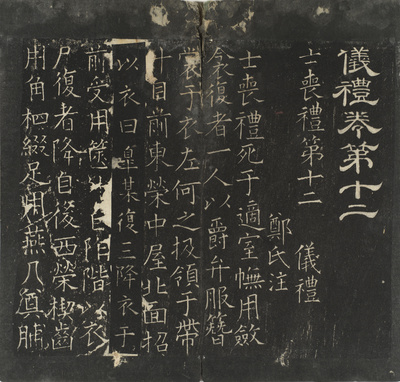 儀禮卷第十二
士喪禮第十二 儀禮
鄭氏注
士喪禮死于適室幠用斂
衾復者一人以爵弁服簪
裳于衣左何之扱領于帶
升自前東榮中屋北面招
以衣曰皐某復三降衣于
前受用篋升自阼階以衣
尸復者降自後西榮楔齒
用角柶綴足用燕几奠脯